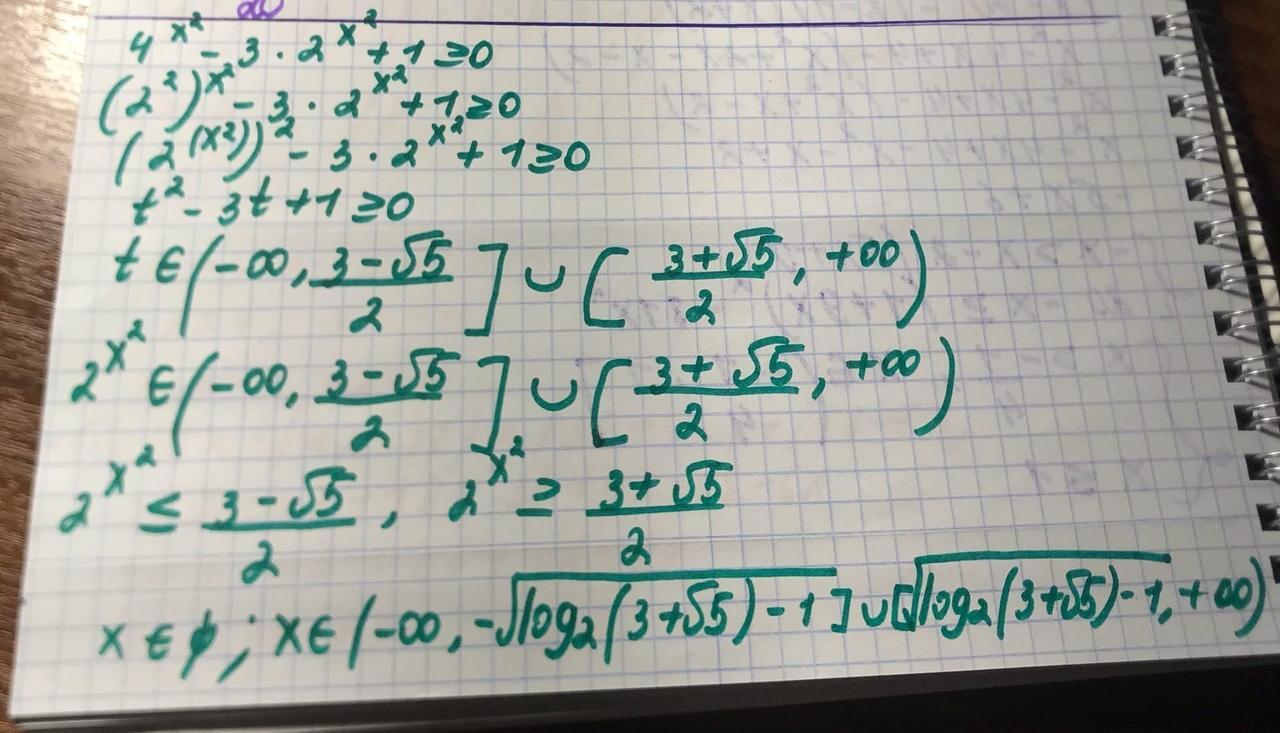 4^{x^2} - 3 · 2^{x^2} + 1 ≥ 0
(2^2)^{x^2} - 3 · 2^{x^2} + 1 ≥ 0
(2^{(x^2)})^2 - 3 · 2^{x^2} + 1 ≥ 0
t^2 - 3t + 1 ≥ 0
t ∈ (-∞, \frac{3-√5}{2}] ∪ [\frac{3+√5}{2}, +∞)
2^{x^2} ∈ (-∞, \frac{3-√5}{2}] ∪ [\frac{3+√5}{2}, +∞)
2^{x^2} ≤ \frac{3-√5}{2}, 2^{x^2} ≥ \frac{3+√5}{2}
x ∈ ϕ; x ∈ (-∞, -\sqrt{log_2(3+√5)-1}] ∪ [\sqrt{log_2(3+√5)-1}, +∞)